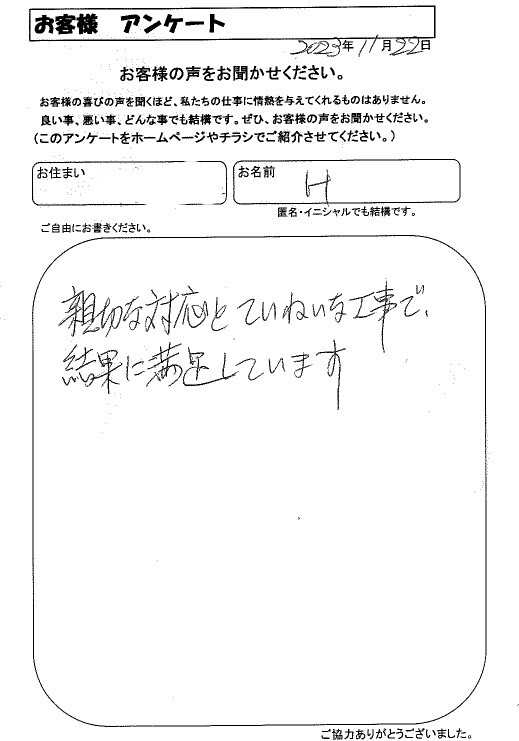 お客様 アンケート
2023年11月22日
お客様の声をお聞かせください。
お客様の喜びの声を聞くほど、私たちの仕事に情熱を与えてくれるものはありません。
良い事、悪い事、どんな事でも結構です。ぜひ、お客様の声をお聞かせください。
（このアンケートをホームページやチラシでご紹介させてください。）
お住まい
お名前 H
匿名・イニシャルでも結構です。
ご自由にお書きください。
親切な対応とていねいな工事で、
結果に満足しています
ご協力ありがとうございました。